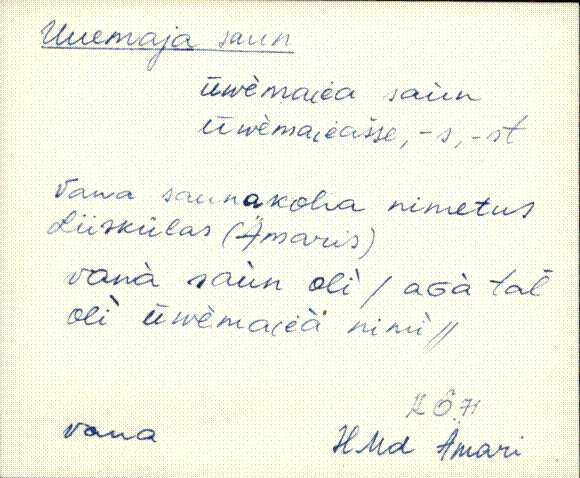 Uuemaja saun
ūwèmaiea saùn
ūwèmaieasse, -s, -st
Vana saunakoha nimetus
Liiskülas (Ämaris)
vanà saùn olì / aGà tal
olì ūwèmaieà nimì //
KÕ.71
vana
HMd Ämari